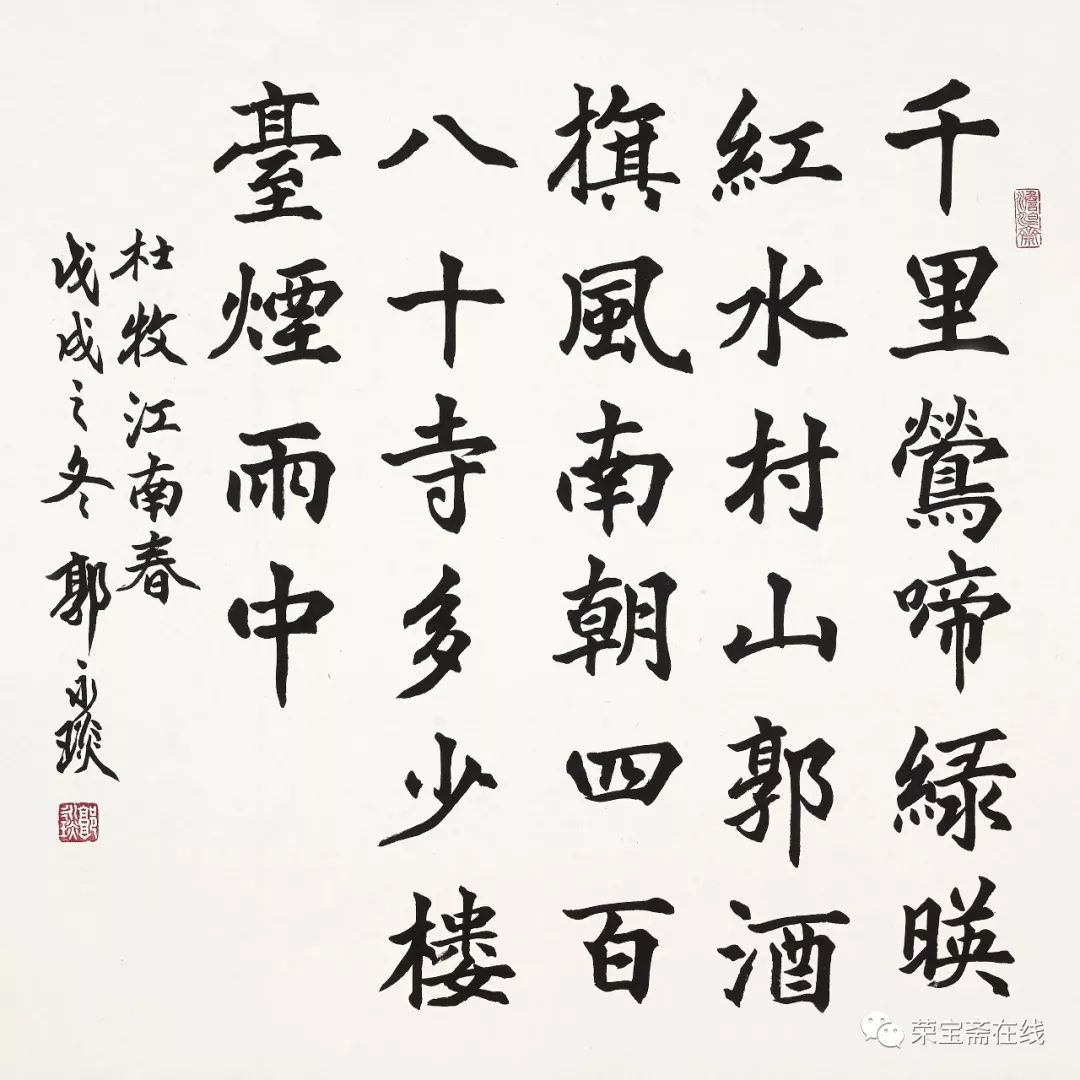 千里鶯啼緑暎
紅水村山郭酒
旗風南朝四百
八十寺多少楼
臺煙雨中
杜牧江南春
戊戌之冬 郭永琰
荣宝斋在线